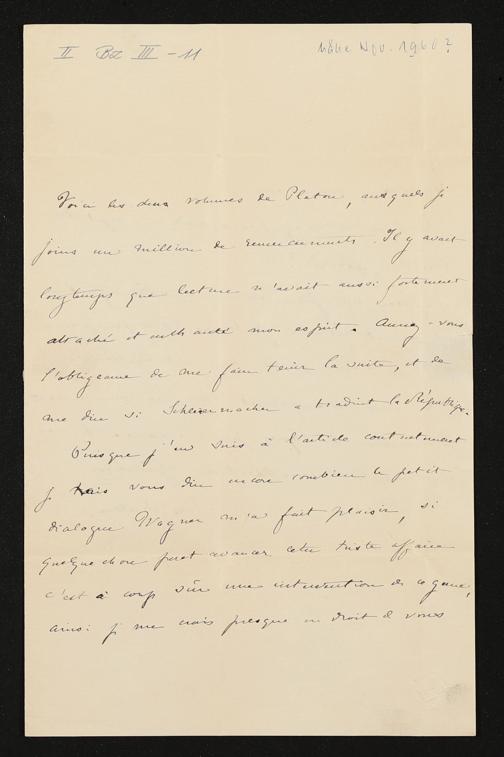 II Bz III - 11
Nov. 1960?
Voici les deux volumes de Platon, auxquels je
joins un million de remerciements. Il y avait
longtemps que lecture n'avait aussi fortement
attaché et mon esprit. Auriez-vous
l'obligeance de me faire tenir la suite, et de
me dire si Schleiermacher a traduit la République.
Puisque j'en suis à l'article contentement
je vais vous dire encore combien le petit
dialogue Wagner m'a fait plaisir, si
quelque chose peut avancer cette triste affaire
c'est à coup sûr une intervention de ce genre,
ainsi je me crois presque en droit de vous